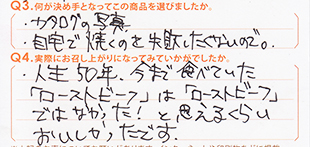 Q3.何が決め手となってこの商品を選びましたか。
・カタログの写真
・自宅で焼くのを失敗したくないので。
Q4.実際にお召し上がりになってみていかがでしたか。
・人生50年、今まで食べていた
「ローストビーフ」は「ローストビーフ」
ではなかった!と思えるくらい
おいしかったです。